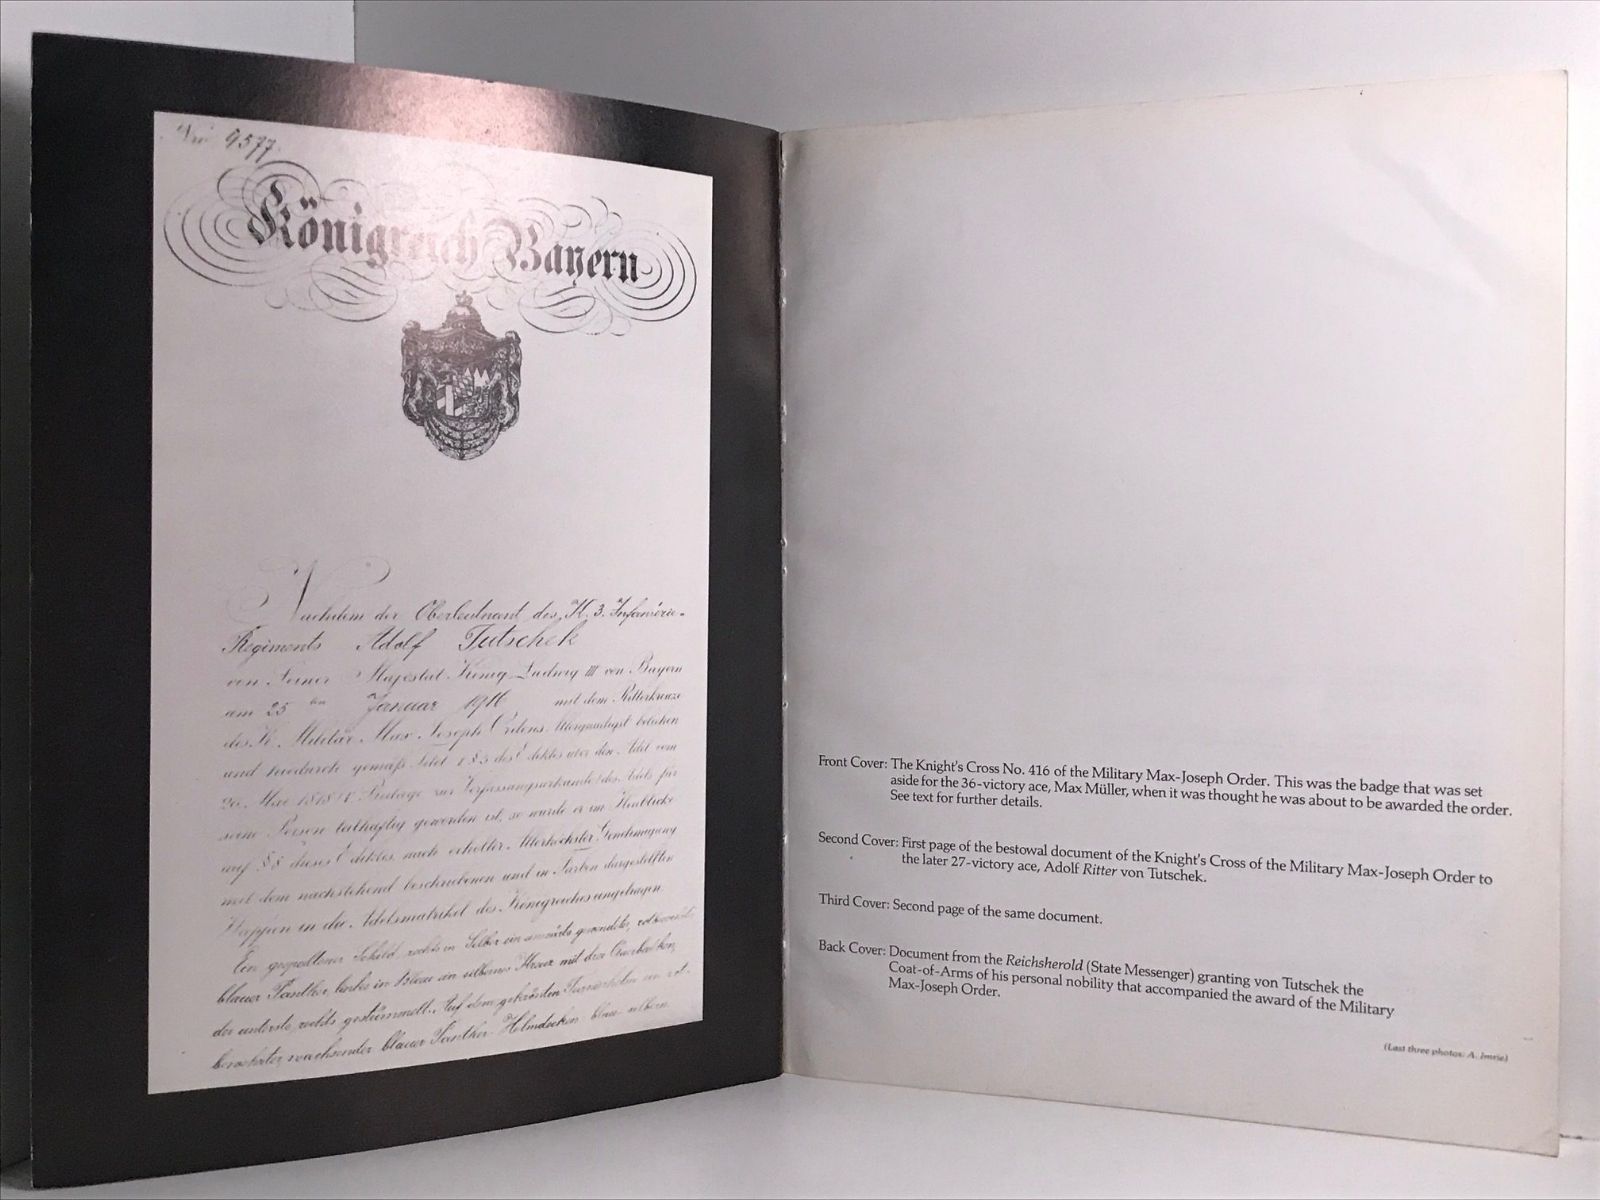 9577
Königreich Bayern
Nachdem der Oberleutnant des K. 3. Infanterie-
Regiments Adolf Tutschek
von Seiner Majestät König Ludwig III von Bayern
am 25ten Januar 1916 mit dem Ritterkreuze
des K. Militär Max Joseph Ordens Allergnädigst beliehen
und hiedurch gemäß Titel I § 5 des Ediktes über den Adel vom
26. Mai 1818 Beilage zur Verfassungsurkunde des Adels für
seine Person teilhaftig geworden ist, so wurde er im Hinblicke
auf § 8 dieses Ediktes nach erholter Allerhöchster Genehmigung
mit dem nachstehend beschriebenen und in Farben dargestellten
Wappen in die Adelsmatrikel des Königreiches eingetragen.
Ein gespaltener Schild, rechts in Silber ein
blauer Panther, links in Blau ein silbernes Kreuz mit drei Querbalken,
der unterste rechts gestümmelt. Auf dem gekrönten Turnierhelm ein rot-
bewehrter, wachsender blauer Panther. Helmdecken blau-silbern.
Front Cover: The Knight's Cross No. 416 of the Military Max-Joseph Order. This was the badge that was set
aside for the 36-victory ace, Max Müller, when it was thought he was about to be awarded the order.
See text for further details.
Second Cover: First page of the bestowal document of the Knight's Cross of the Military Max-Joseph Order to
the later 27-victory ace, Adolf Ritter von Tutschek.
Third Cover: Second page of the same document.
Back Cover: Document from the Reichsherold (State Messenger) granting von Tutschek the
Coat-of-Arms of his personal nobility that accompanied the award of the Military
Max-Joseph Order.
(Last three photos: A. Imrie)